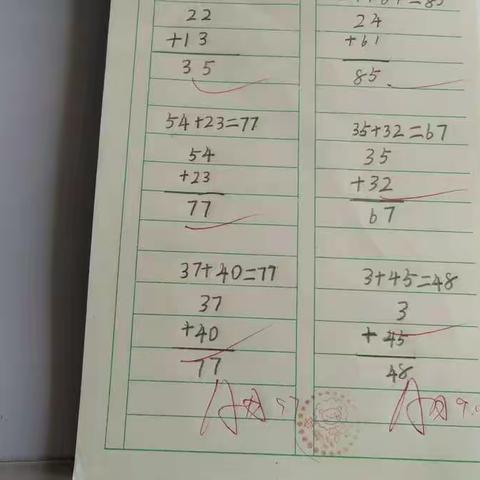 22
+13
35
54+23=77
54
+23
77
37+40=77
37
+40
77
24
+61
85
35+32=67
35
+32
67
3+45=48
3
+45
48